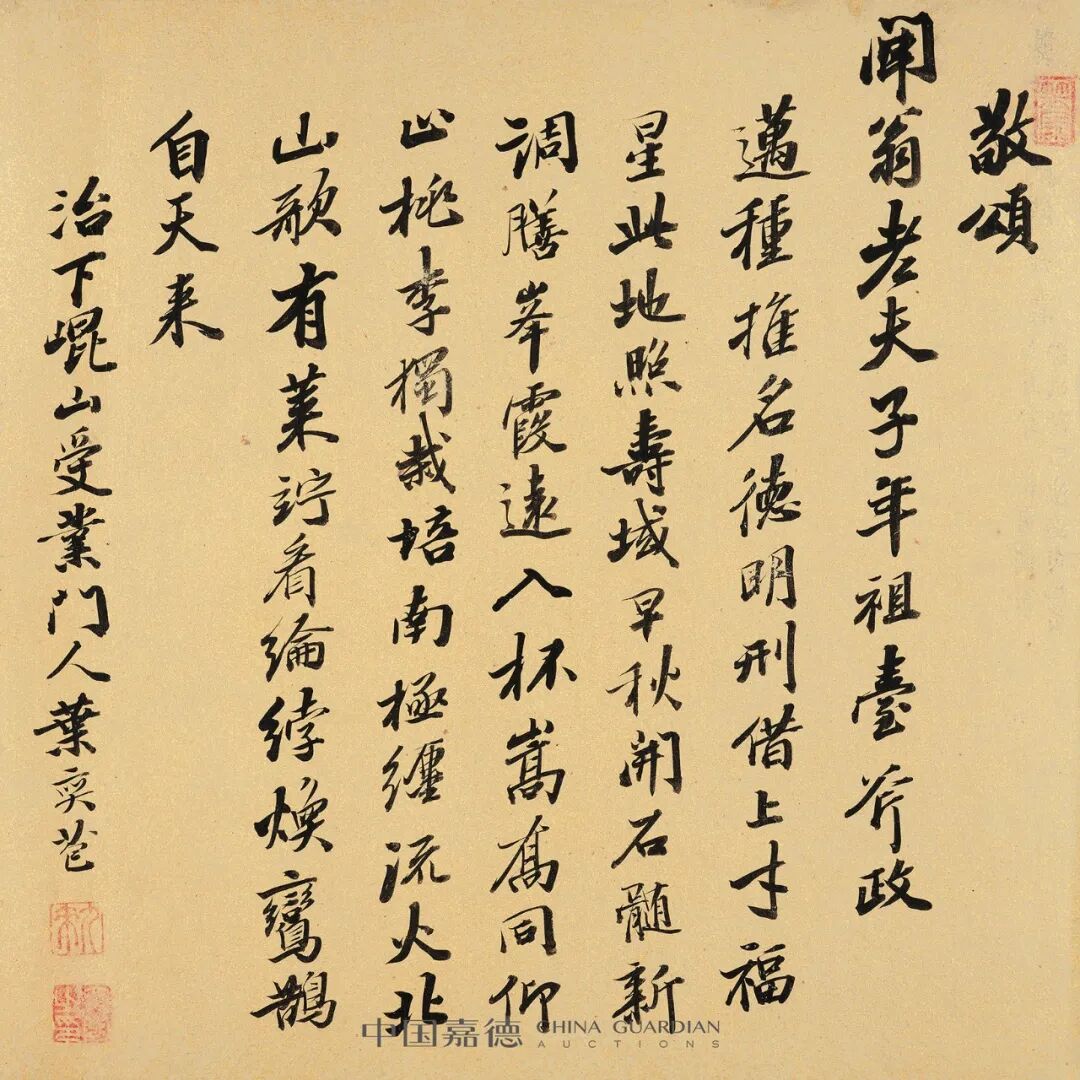 敬頌
闻翁老夫子年祖臺斧政
邁種推名德明刑借上才福
星此地照壽域早秋開石髓新
調膳峯霞遠入杯嵩喬同仰
止桃李獨栽培南極纏流火北
山歌有萊竚看綸綍煥鸞鵲
自天来
治下崐山受業門人葉奕苞
中国嘉德 CHINA GUARDIAN
AUCTIONS